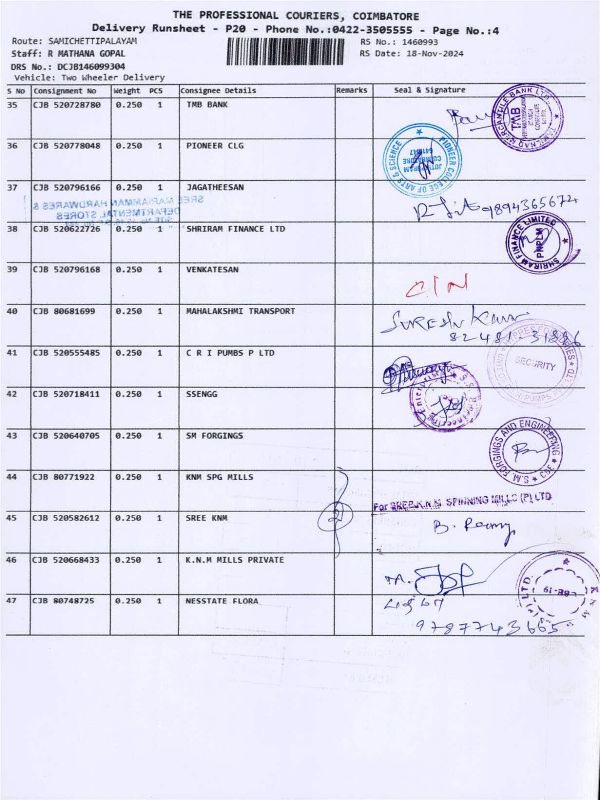 THE PROFESSIONAL COURIERS, COIMBATORE
Delivery Runsheet - P20 - Phone No.:0422-3505555 - Page No.:4
Route: SAMICHETTIPALAYAM RS No.: 1460993
Staff: R MATHANA GOPAL RS Date: 18-Nov-2024
DRS No.: DCJB146099304
Vehicle: Two Wheeler Delivery
S No Consignment No Weight PCS Consignee Details Remarks Seal & Signature
35 CJB 520728780 0.250 1 TMB BANK
TMB
36 CJB 520778048 0.250 1 PIONEER CLG
PIONEER COLLEGE OF ARTS & SCIENCE
37 CJB 520796166 0.250 1 JAGATHEESAN
9894365674
SREE MARIAMMAN HARDWARES &
DEPARTMENTAL STORES
38 CJB 520622726 0.250 1 SHRIRAM FINANCE LTD
SHRIRAM FINANCE LIMITED
PNPLM
39 CJB 520796168 0.250 1 VENKATESAN
C/N
40 CJB 80681699 0.250 1 MAHALAKSHMI TRANSPORT
SURESH Kumar
82481-31886
41 CJB 520555485 0.250 1 C R I PUMBS P LTD
SECURITY
42 CJB 520718411 0.250 1 SSENGG
43 CJB 520640705 0.250 1 SM FORGINGS
S.M FORGINGS AND ENGINEERING
44 CJB 80771922 0.250 1 KNM SPG MILLS
For SREE K.N.M. SPINNING MILLS (P) LTD
45 CJB 520582612 0.250 1 SREE KNM
46 CJB 520668433 0.250 1 K.N.M MILLS PRIVATE
CBE-19
47 CJB 80748725 0.250 1 NESSTATE FLORA
9787743665